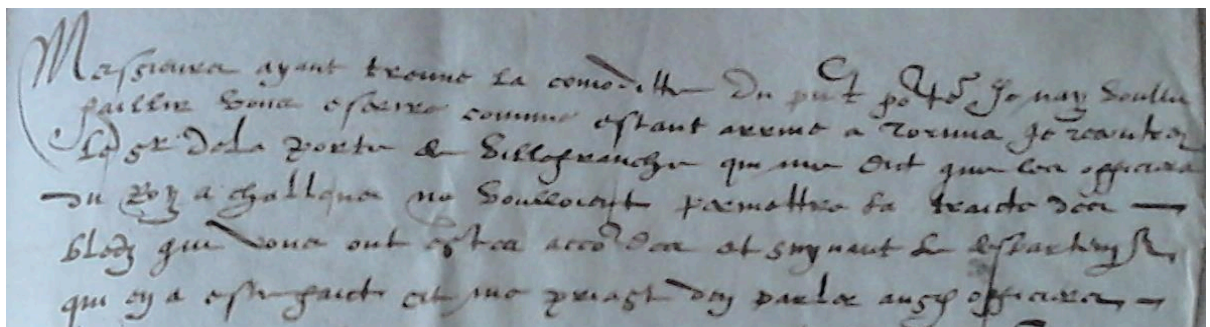 Messieurs ayant trouve la comoditte du pnt porteur Je nay voullu
faillir vous escrire comme estant arrive a je rencontre
le sr de la Porte de Villefranche qui me dict que les officiers
du Roy a ne voulloient permettre la traicte des
bledz qui vous ont estes accordes et suyvant le
qui en a este faict et me priast den parler aux officiers